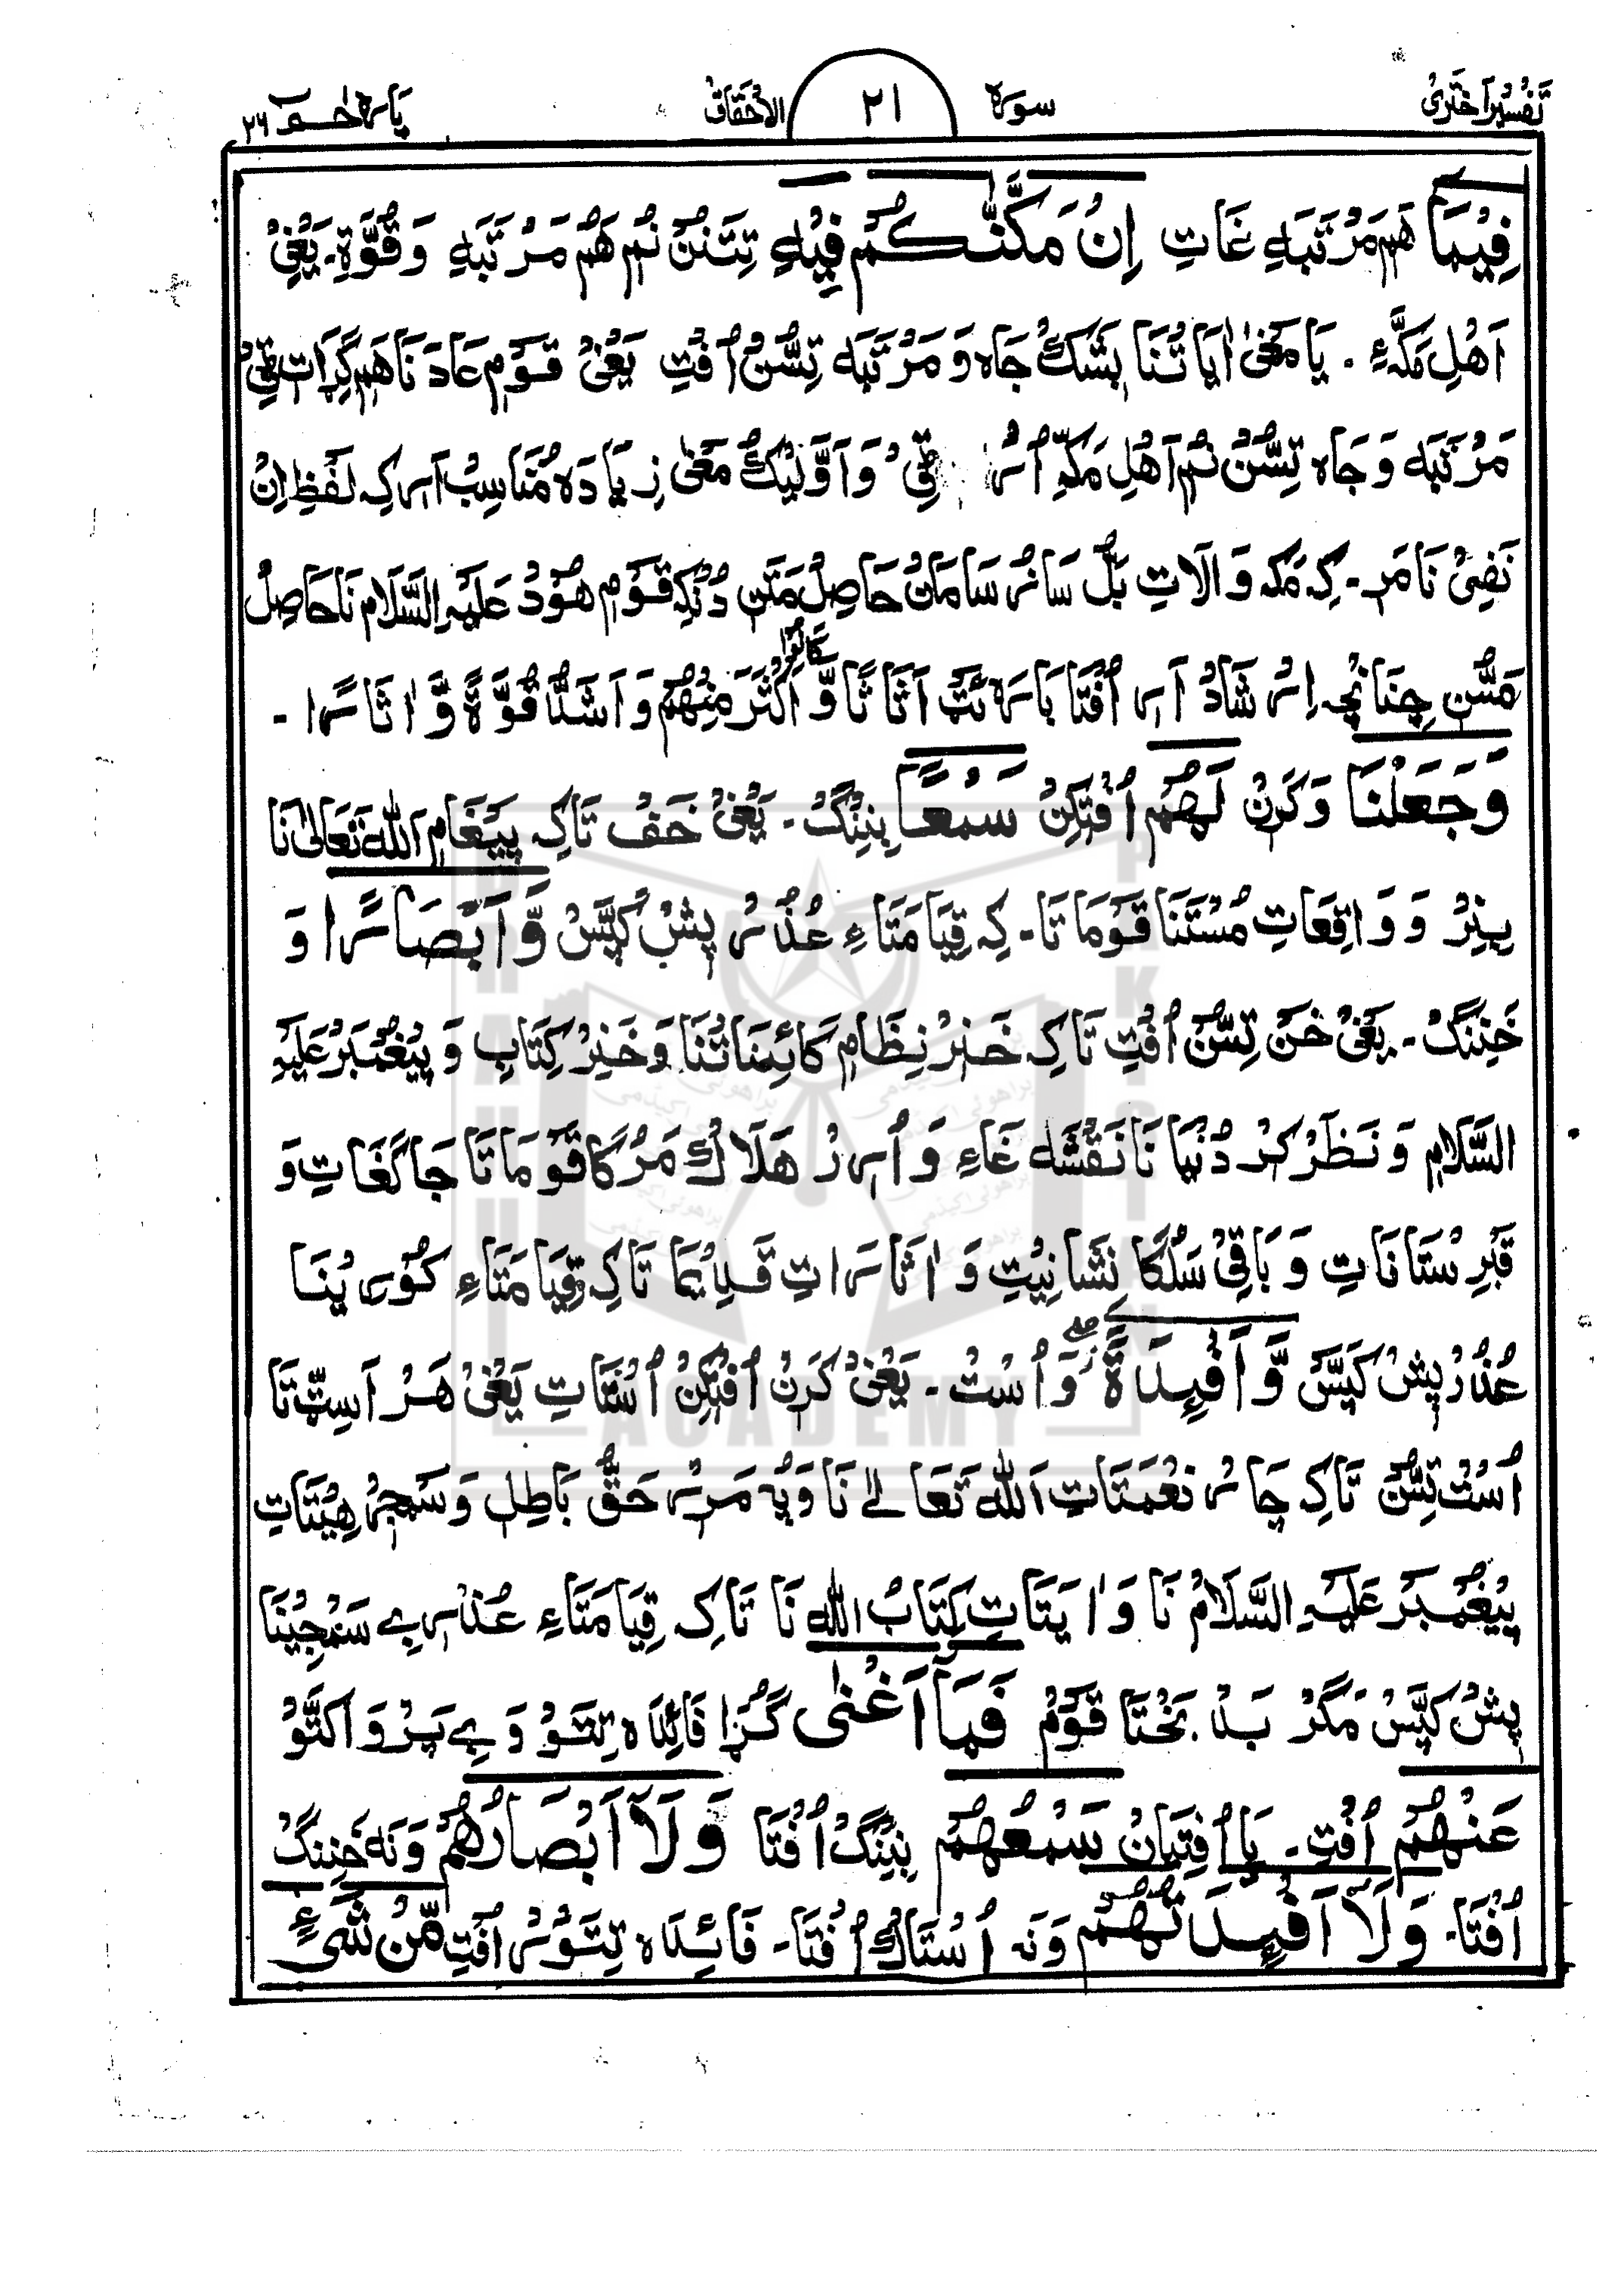 تَفسِیْرِ اَخْتَرِیْ سورۃ ٢١ الاَحْقَاقْ پارہ حٰم ٢٦
فِیْمَا هَم مَرْتَبَهِ غَاتِ اِنْ مَّكَّنّٰكُمْ فِیْهِ تِتَنُنْ نُم هَم مَرْتَبَهِ وَ قُوَّةِ۔ یَعْنِیْ
اَهْلِ مَكَّهِ . یَا مَعْنٰی اٰیَاتُنَا بَشَكْ جَاه وَ مَرْتَبَه تِسُّنْ اُفْتِ یَعْنِیْ قَوْمِ عَادَ نَا هَم كِرَاتِ ٹِیْ
مَرْتَبَه وَ جَاه تِسُّنْ نُم اَهْلِ مَكّهِ اُرْ ٹِیْ وَ اَوَّلِیْكُ مَعْنٰی زِیَادَه مُنَاسِبْ اَرِ كِه لَفْظِ اِنْ
نَفِیْ نَامَر۔ كِه مَكه وَالَاتِ بَلْ سَازُ سَامَانْ حَاصِلْ مَتَن دُنْكِه قَوْمِ هُوْدْ عَلَیْهِ السَّلَام نَا حَاصِلْ
مَسُّن چِنَانْچِه اِرْشَادْ اَرِ اُفْتَا بَارَه ئَٹْ اَثَاثًا وَّ كَانُوْا اَكْثَرَ مِنْهُمْ وَ اَشَدَّ قُوَّةً وَّ اٰثَارًا ۔
وَجَعَلْنَا وَ كَرِنْ لَهُمْ اُفْتِكِنْ سَمْعًا بِنِنْگ ۔ یَعْنِیْ خَفْ تَاكِه پَیْغَامِ اَللّٰه تَعَالٰی نَا
بِنِرْ وَ وَاقِعَاتِ مُسْتَنَا قَوْمَاتَا۔ كِه قِیَامَتَاءِ عُذُرْ پِشْ كَپَسْ وَّ اَبْصَارًا وَ
خَنِنْگ ۔ یَعْنِیْ خَن تِسُّنْ اُفْتِ تَاكِه خَنِرْ نِظَامِ كَائِنَاتُنَا وَ خَنِرْ كِتَابِ وَ پَیْغَمْبَرْ عَلَیْهِ
السَّلَامِ وَ نَظَرْ كِرْ دُنْیَا نَا نَقْشَه غَاءِ وَ اُرِرْ هَلَاكْ مَرُكَا قَوْمَاتَا جَاگَغَاتِ وَ
قَبْرِسْتَانَاتِ وَ بَاقِیْ سَلُكَا نِشَانِیْتِ وَ اٰثَارَاتِ قَدِیْمَا تَاكِه قِیَامَتَاءِ كُوْرِیْنَا
عُذُرْ پِشْ كَپَسْ وَّ اَفْـِٕدَةً وَ اُسْتْ ۔ یَعْنِیْ كَرِنْ اُفْتِكِنْ اُسْتَاتِ یَعْنِیْ هَرْ اَسِٹّ تَا
اُسْتْ تِسُّنْ تَاكِه چَارْ نِعْمَتَاتِ اَللّٰه تَعَالٰے نَا وَ پُه مَرِرْ حَقُّ بَاطِلِ وَ سَمْجِرْ هِیْتَاتِ
پَیْغَمْبَرْ عَلَیْهِ السَّلَامْ نَا وَ اٰیَتَاتِ كِتَابْ اللّٰه نَا تَاكِه قِیَامَتَاءِ عُذْرِ بے سَمْجِیْنَا
پِشْ كَپَسْ مَگَرْ بَدْ بَخْتَا قَوْمْ فَمَآ اَغْنٰی گُڑَا فَائِدَه تِتَوْ وَ بے پَرْوَا كَتَّوْ
عَنْهُمْ اُفْتِ ۔ یَا اُفْتِیَانْ سَمْعُهُمْ بِنِنْگْ اُفْتَا وَلَآ اَبْصَارُهُمْ وَ نَه خَنِنْگ
اُفْتَا۔ وَلَآ اَفْـِٕدَتُهُمْ وَ نَه اُسْتَاكْ اُفْتَا۔ فَائِدَه تِتَوْرْ اُفْتِ مِّنْ شَیْءٍ